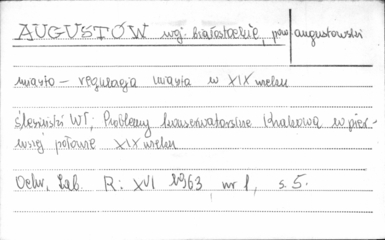 AUGUSTÓW woj. białostockie, pow. augustowski
miasto – regulacja miasta w XIX wieku
Ślesiński Wł; Problemy konserwatorskie Krakowa w pier-
wszej połowie XIX wieku
Ochr. Zab. R: XVI 1963, nr 1, s. 5.